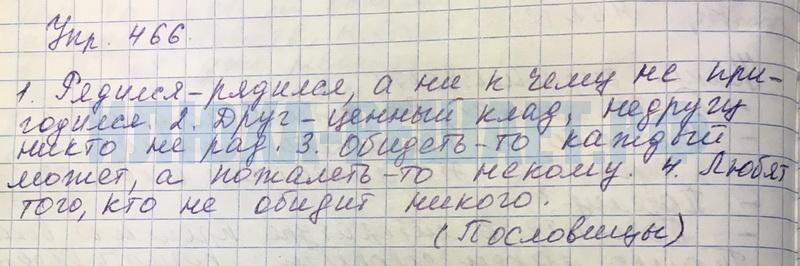 Упр. 466.
1. Рядился-рядился, а ни к чему не при-
годился. 2. Друг - ценный клад, недругу
никто не рад. 3. Обидеть-то каждый
может, а пожалеть-то некому. 4. Любят
того, кто не обидит никого.
(Пословицы)